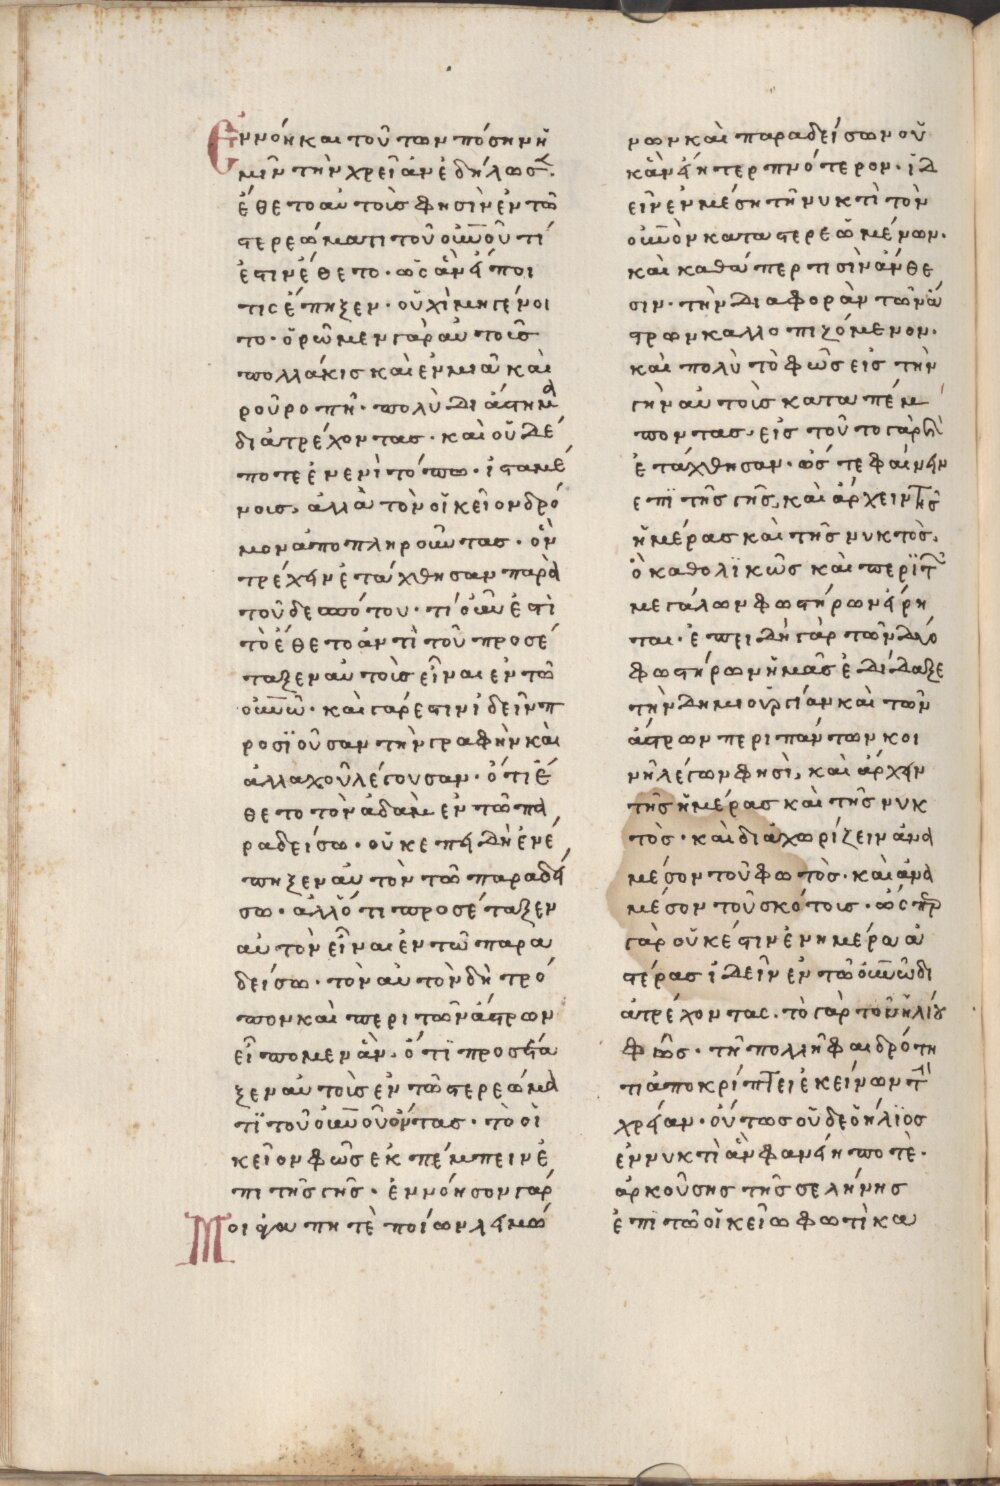 Ἐννόη και τοῦ των πόσην ἡ
μῖν την χρεῖάν ἐδήλωσ.
ἔθετο αυ τοὺς φησὶν ἐν τῶ
στερεώματι τοῦ οὐνοῦ τί
ἐστιν ἔθετο. ὡς ἂν εἴποι
τις ἔπηξεν. οὐχὶ μη γένοι
το. ὁρῶμεν γὰρ αὐτοὺς
πολλάκις καὶ εν μιᾶ και
ροῦ ροπῆ. πολὺ διάστημα
διατρέχοντας. καὶ οὐδέ
ποτε ἐν ενὶ τόπω. ἱσταμέ
νοις, ἀλλὰ τὸν οἰκεῖον δρό
μον ἀποπληροῦντας. ὃν
τρέχειν ἐτάχθησαν παρὰ
τοῦ δεσπότου. τί οὖν ἐστὶ
τὸ ἔθετο ἀντὶ τοῦ προσέ
ταξεν αὐτοὺς εἶναι ἐν τῶ
οὐνῶ. καὶ γάρ ἐστιν ἰδεῖν π
ροσϊοῦσαν τὴν γραφὴν καὶ
ἀλλαχοῦ λέγουσαν. ὅτι ἔ
θετο τὸν ἀδὰμ ἐν τῶ πα
ραδείσω. οὐκ επειδὴ ἐνέ
πηξεν αὐτὸν τῶ παραδεί
σω. ἀλλ' ὅτι προσέταξεν
αὐτὸν εἶναι ἐν τῶ παρα
δείσω. τὸν αὐτὸν δὴ τρό
πον καὶ περι τῶν ἄστρων
εἴπομεν ἂν. ὅτϊ προσέτα
ξεν αὐτοὺς ἐν τῶ στερεώμα
τϊ τοῦ οὐνοῦ ὄντας. τὸ οἰ
κεῖον φῶς ἐκπέμπειν ἐ
πι τῆς γῆς. ἐννόησον γάρ
Μοι ἀγαπητὲ ποίων λειμώ
νων καὶ παραδείσων οὐ
κ ἂν εἴη τερπνότερον. ἰδ
εῖν ἐν μέση τῆ νυκτὶ τὸν
οὐνὸν καταστερεῶμένων.
καὶ καθάπερ τισὶν ἄνθε
σιν. τὴν διαφορὰν τῶν ἄ
στρων καλλοπιζόμενον.
καὶ πολὺ τὸ φῶς εἰς τὴν
γῆν αὐτοὺς καταπέμ
ποντας. εἰς τοῦτο γὰρ καὶ
ἐτάχθησαν. ὥστε φαίνειν
επϊ τῆς γῆς, καὶ ἄρχειν τῆς
ἡμέρας καὶ τῆς νυκτὸς.
ὃ καθολϊκῶς καὶ περϊ τῶν
μεγάλων φωστήρων εἴρη
ται. ἐπειδὴ γὰρ τῶν δύο
φωστήρων ἡμᾶς ἐδίδαξε
τὴν δημιουργίαν καὶ τῶν
ἄστρων περι πάντων κοι
νῆ λέγων φησὶ, καὶ ἄρχειν
τῆς ἡμέρας καὶ τῆς νυκ
τὸς. καὶ διαχωρίζειν ἀνα
μέσον τοῦ φωτὸς. καὶ ἀνα
μέσον τοῦ σκότοις. ὥσπερ
γὰρ οὐκ ἔστιν ἐν ημέρα ἀ
στέρας ἰδεῖν ἐν τῶ οὐνῶ δι
ατρέχοντας. τὸ γὰρ τοῦ ἡλίου
φῶς. τῆ πολλῆ φαιδρότη
τι ἀποκρίπτει ἐκείνων τὴν
χρείαν. οὕτως οὐδε ὁ ἥλϊος
ἐν νυκτὶ ἂν φανείη ποτὲ.
ἀρκούσης τῆς σελήνης
ἐπι τῶ οἰκεῖω φωτὶ κα